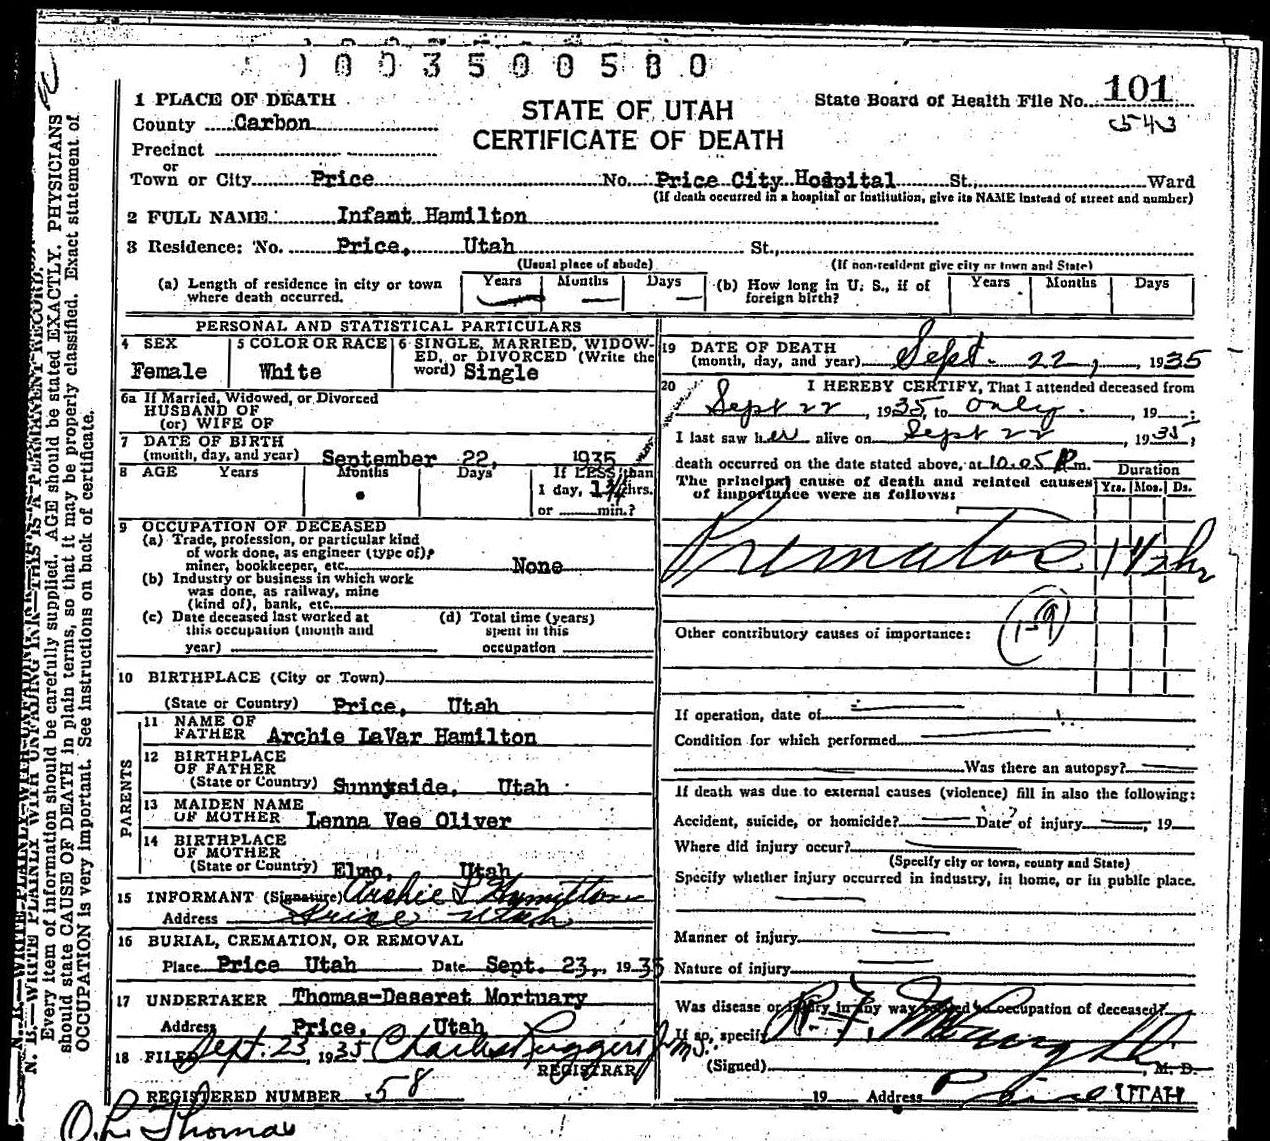 0 0 3 5 0 0 5 8 0
1 PLACE OF DEATH
STATE OF UTAH
CERTIFICATE OF DEATH
State Board of Health File No. 101
543
County Carbon
Precinct
or
Town or City Price No. Price City Hospital St., Ward
(If death occurred in a hospital or institution, give its NAME instead of street and number)
2 FULL NAME: Infant Hamilton
3 Residence: No. Price, Utah St.,
(Usual place of abode) (If non-resident give city or town and State)
(a) Length of residence in city or town where death occurred. Years Months Days
(b) How long in U. S., if of foreign birth? Years Months Days
PERSONAL AND STATISTICAL PARTICULARS
4 SEX
Female
5 COLOR OR RACE
White
6 SINGLE, MARRIED, WIDOW-
ED, or DIVORCED (Write the
word) Single
6a If Married, Widowed, or Divorced
HUSBAND OF
(or) WIFE OF
7 DATE OF BIRTH
(month, day, and year) September 22, 1935
8 AGE Years Months Days If LESS than
1 day, hrs.
or min.?
9 OCCUPATION OF DECEASED
(a) Trade, profession, or particular kind
of work done, as engineer (type of),
miner, bookkeeper, etc. None
(b) Industry or business in which work
was done, as railway, mine
(kind of), bank, etc.
(c) Date deceased last worked at
this occupation (month and
year)
(d) Total time (years)
spent in this
occupation
10 BIRTHPLACE (City or Town)
(State or Country) Price, Utah
PARENTS
11 NAME OF
FATHER Archie LaVar Hamilton
12 BIRTHPLACE
OF FATHER
(State or Country) Sunnyside, Utah
13 MAIDEN NAME
OF MOTHER Lenna Vee Oliver
14 BIRTHPLACE
OF MOTHER
(State or Country) Elmo, Utah
15 INFORMANT (Signature) Archie L Hamilton
Address Price Utah
16 BURIAL, CREMATION, OR REMOVAL
Place Price Utah Date Sept. 23, 1935
17 UNDERTAKER Thomas-Deseret Mortuary
Address Price, Utah
18 FILED Sept. 23, 1935 Charles Ruggeri Jr
M.D.
REGISTRAR
REGISTERED NUMBER 58
O. L. Thomas
19 DATE OF DEATH
(month, day, and year) Sept. 22, 1935
20 I HEREBY CERTIFY, That I attended deceased from
Sept 22, 1935, to only, 19 ;
I last saw her alive on Sept 22, 1935,
death occurred on the date stated above, at 10.05 P m.
The principal cause of death and related causes
of importance were as follows:
Duration
Yrs. Mos. Ds.
Premature 1 1/2 hr
1-9
Other contributory causes of importance:
If operation, date of
Condition for which performed
Was there an autopsy?
If death was due to external causes (violence) fill in also the following:
Accident, suicide, or homicide? Date of injury , 19
Where did injury occur?
(Specify city or town, county and State)
Specify whether injury occurred in industry, in home, or in public place.
Manner of injury
Nature of injury
Was disease or injury in any way related to occupation of deceased?
If so, specify
(Signed) R. F. , M. D.
19 Address Price UTAH
N. B.—WRITE PLAINLY WITH UNFADING INK—THIS IS A PERMANENT RECORD.
Every item of information should be carefully supplied. AGE should be stated EXACTLY. PHYSICIANS
should state CAUSE OF DEATH in plain terms, so that it may be properly classified. Exact statement of
OCCUPATION is very important. See instructions on back of certificate.